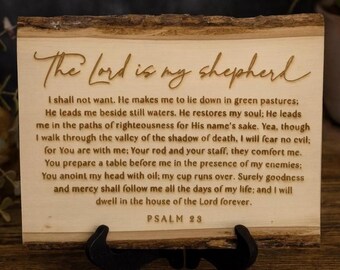 The Lord is my shepherd
I shall not want. He makes me to lie down in green pastures;
He leads me beside still waters. He restores my soul; He leads
me in the paths of righteousness for His name's sake. Yea, though
I walk through the valley of the shadow of death, I will fear no evil;
for You are with me; Your rod and your staff, they comfort me.
You prepare a table before me in the presence of my enemies;
You anoint my head with oil; my cup runs over. Surely goodness
and mercy shall follow me all the days of my life; and I will
dwell in the house of the Lord forever.
PSALM 23